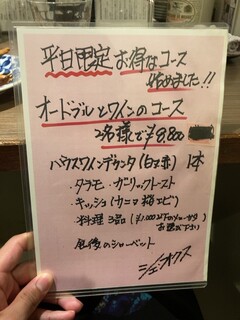 平日限定 お得なコース
始めました!!
オードブルとワインのコース
2名様で¥8,800
ハウスワインデカンタ(白or赤) 1本
・タラモ・ガーリックトースト
・キッシュ(カニor桜エビ)
・料理 3品(¥1,000以下のメニューから
お選び下さい)
食後のシャーベット
シェ・オクス